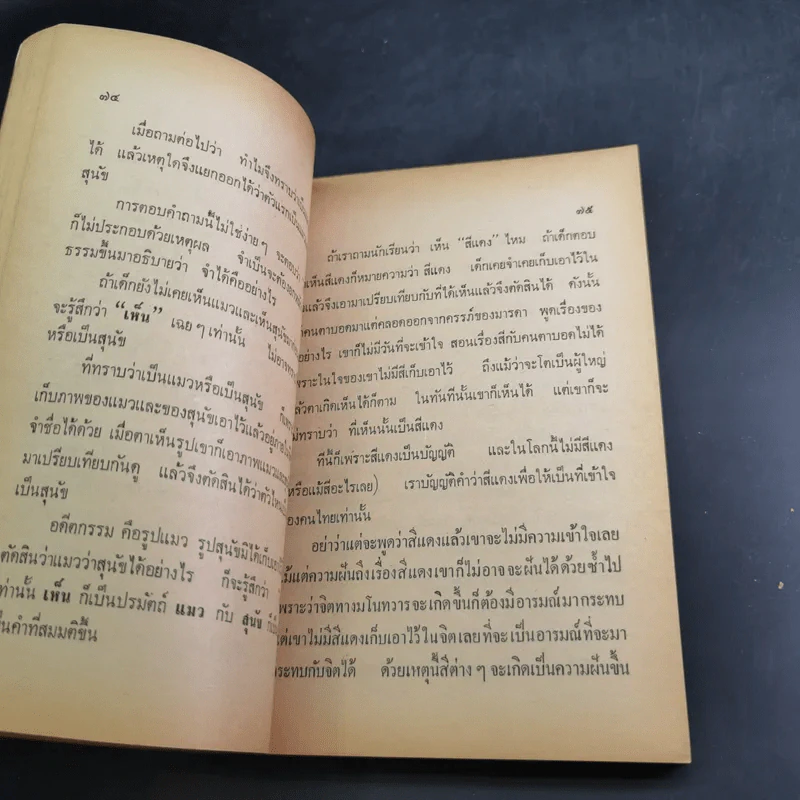 ๗๔
เมื่อถามต่อไปว่า ทำไมจึงทราบว่าเป็น
ได้ แล้วเหตุใดจึงแยกออกได้ว่าตัวแรกเป็นแมว
สุนัข
การตอบคำถามนี้ไม่ใช่ง่ายๆ จะตอบว่า
ก็ไม่ประกอบด้วยเหตุผล จำเป็นจะต้อง
ธรรมขึ้นมาอธิบายว่า จำได้คืออย่างไร
ถ้าเด็กยังไม่เคยเห็นแมวและเห็นสุนัข
จะรู้สึกว่า “เห็น” เฉยๆ เท่านั้น ไม่อาจ
หรือเป็นสุนัข
ที่ทราบว่าเป็นแมวหรือเป็นสุนัข
เก็บภาพของแมวและของสุนัขเอาไว้แล้วอยู่
จำชื่อได้ด้วย เมื่อตาเห็นรูปเขาก็เอาภาพแมวและ
มาเปรียบเทียบกันดู แล้วจึงตัดสินได้ว่าตัวไหน
เป็นสุนัข
อดีตกรรม คือรูปแมว รูปสุนัขมิได้เก็บ
ตัดสินว่าแมวว่าสุนัขได้อย่างไร ก็จะรู้สึกว่า
เท่านั้น เห็น ก็เป็นปรมัตถ์ แมว กับ สุนัข
นคำที่สมมติขึ้น
๗๕
ถ้าเราถามนักเรียนว่า เห็น “สีแดง” ไหม ถ้าเด็กตอบ
เห็นสีแดงก็หมายความว่า สีแดง เด็กเคยจำเคยเก็บเอาไว้ใน
แล้วจึงเอามาเปรียบเทียบกับที่ได้เห็นแล้วจึงตัดสินได้ ดังนั้น
คนตาบอดมาแต่คลอดออกจากครรภ์ของมารดา พูดเรื่องของ
อย่างไร เขาก็ไม่มีวันที่จะเข้าใจ สอนเรื่องสีกับคนตาบอดไม่ได้
เพราะในใจของเขาไม่มีสีเก็บเอาไว้ ถึงแม้ว่าจะโตเป็นผู้ใหญ่
แล้วตาเกิดเห็นได้ก็ตาม ในทันทีนั้นเขาก็เห็นได้ แต่เขาก็จะ
ไม่ทราบว่า ที่เห็นนั้นเป็นสีแดง
ทั้งนี้ก็เพราะสีแดงเป็นบัญญัติ และในโลกนี้ไม่มีสีแดง
(หรือแม้สีอะไรเลย) เราบัญญัติคำว่าสีแดงเพื่อให้เป็นที่เข้าใจ
ของคนไทยเท่านั้น
อย่าว่าแต่จะพูดว่าสีแดงแล้วเขาจะไม่มีความเข้าใจเลย
แม้แต่ความฝันถึงเรื่องสีแดงเขาก็ไม่อาจจะฝันได้ด้วยซ้ำไป
เพราะว่าจิตทางมโนทวารจะเกิดขึ้นก็ต้องมีอารมณ์มากระทบ
แต่เขาไม่มีสีแดงเก็บเอาไว้ในจิตเลยที่จะเป็นอารมณ์ที่จะมา
กระทบกับจิตได้ ด้วยเหตุนี้สีต่างๆ จะเกิดเป็นความฝันขึ้น